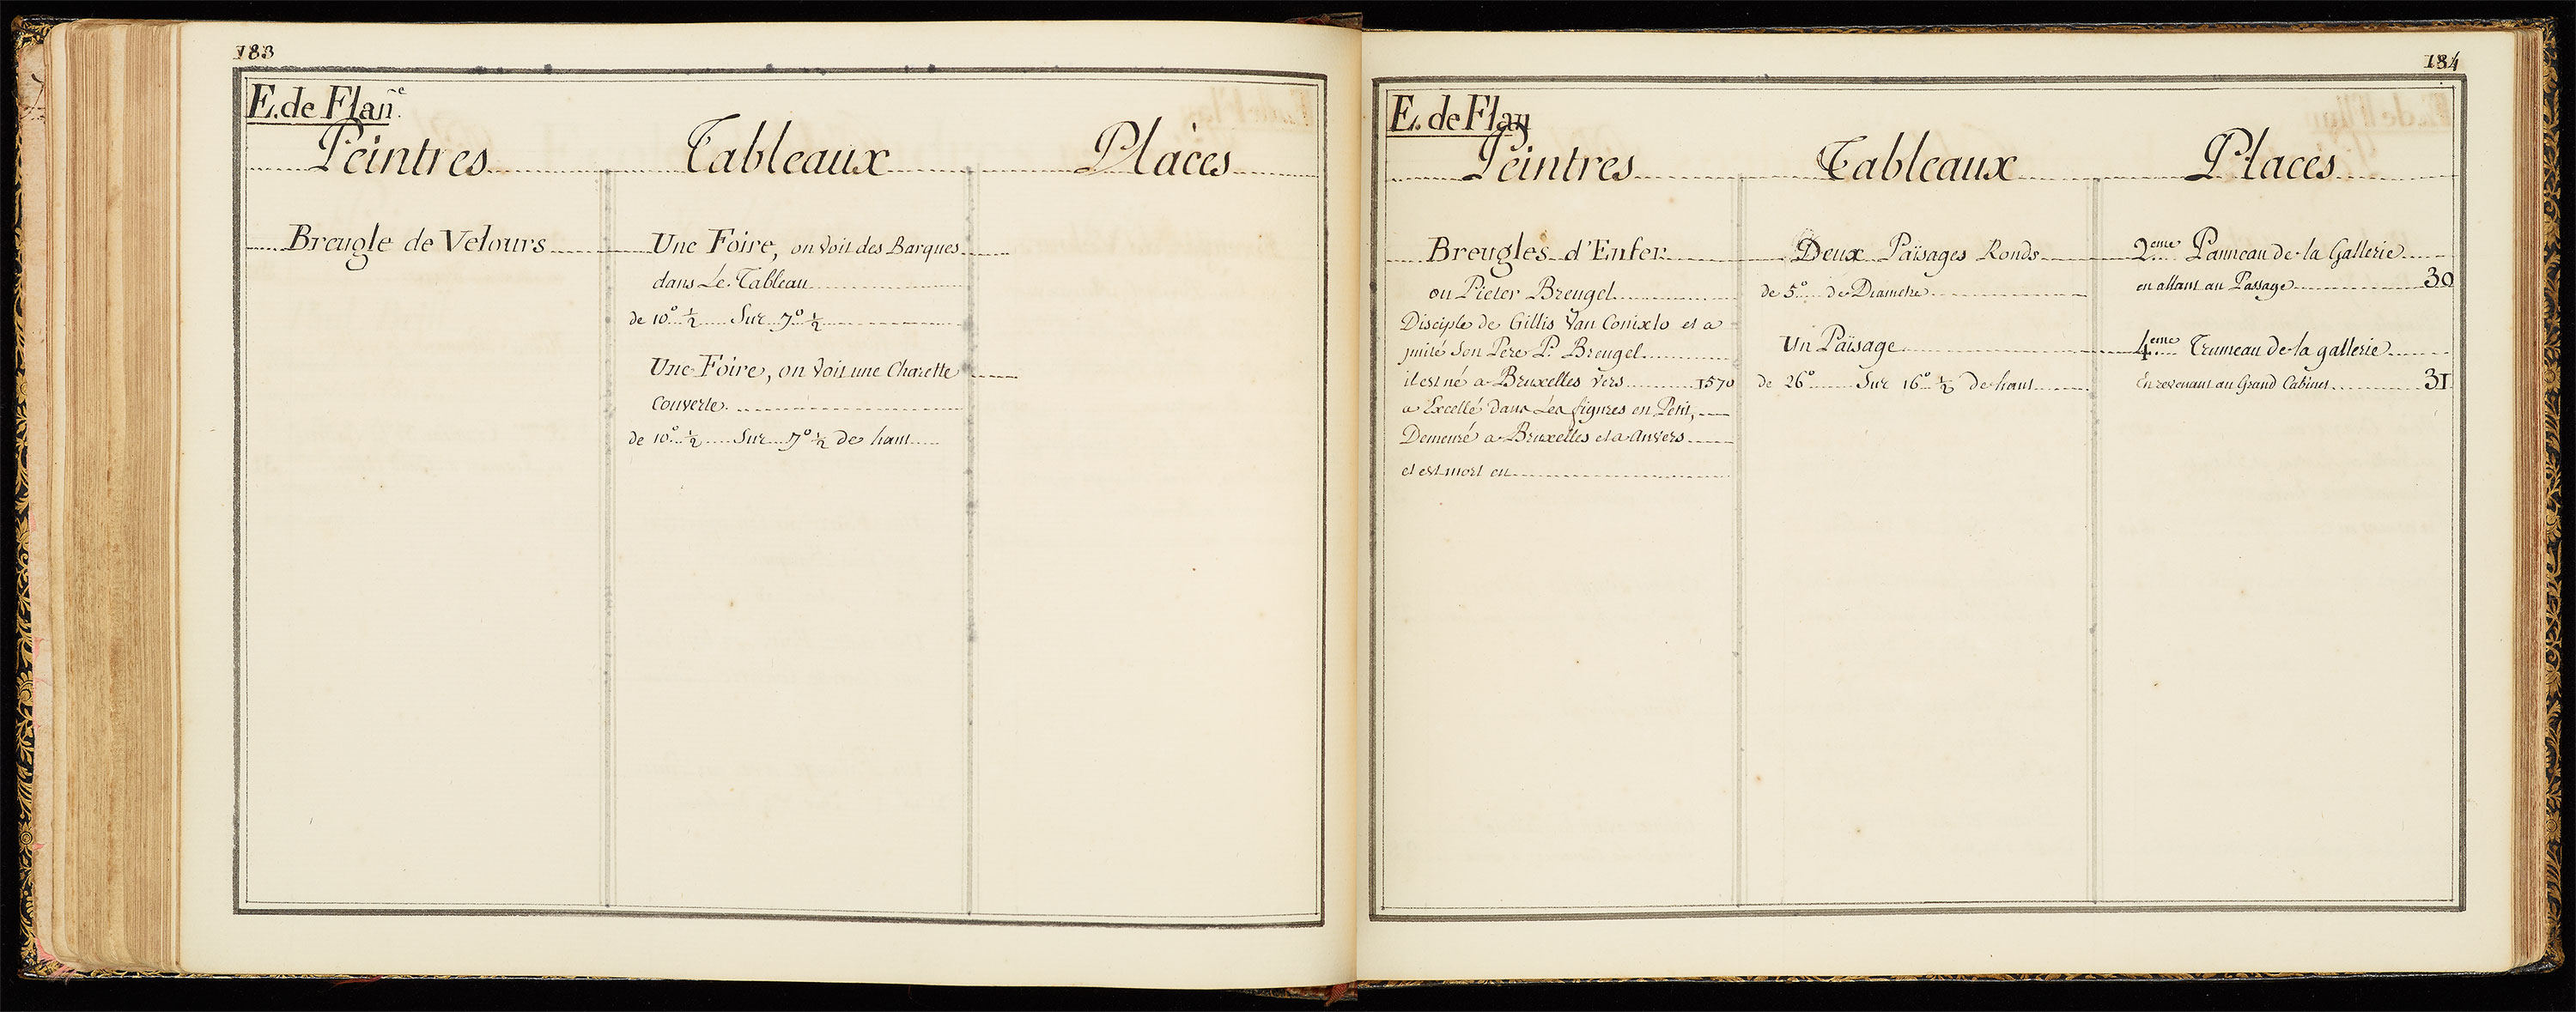 183
E. de Flan̄e.
Peintres Tableaux Places
Breugle de Velours Une Foire, on Voit des Barques
dans Le Tableau
de 10° ½ Sur 7° ½
Une Foire, on Voit une Charette
Couverte.
de 10° ½ Sur 7° ½ de haut
184
E. de Flan
Peintres Tableaux Places
Breugles d'Enfer
ou Pieter Breugel
Disciple de Gillis Van Conixlo et a
imité Son Pere P. Breugel
il est né a Bruxelles vers 1570
a Excellé Dans Les figures en Petit,
Demeuré a Bruxelles et a Anvers
et est mort en
Deux Païsages Ronds
de 5° de Diametre
Un Païsage
de 26° Sur 16° ½ de haut
2eme Panneau de la Gallerie
en allant au Passage 30
4eme Trumeau de la gallerie
En revenant au Grand Cabinet 31